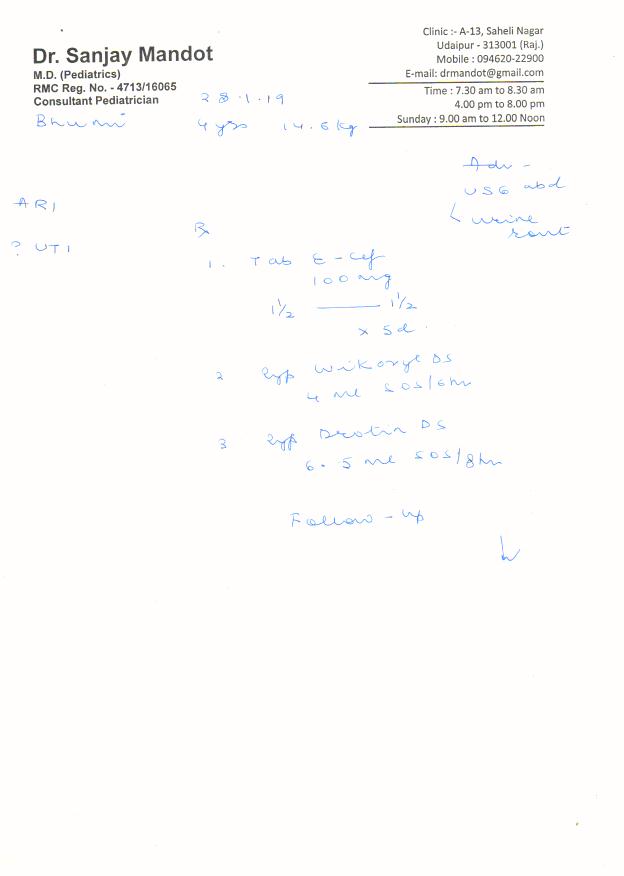 Dr. Sanjay Mandot
M.D. (Pediatrics)
RMC Reg. No. - 4713/16065
Consultant Pediatrician
Clinic :- A-13, Saheli Nagar
Udaipur - 313001 (Raj.)
Mobile : 094620-22900
E-mail: drmandot@gmail.com
Time : 7.30 am to 8.30 am
4.00 pm to 8.00 pm
Sunday : 9.00 am to 12.00 Noon
28.1.19
Bhumi 4 yrs 14.6 kg
Adv -
USG abd
urine
rout
ARI
? UTI
Rx
1. Tab E-Cef
100 mg
1 1/2 —— 1 1/2
x 5d
2 Syp Wikoryl DS
4 ml SOS/6hr
3 Syp Drotin DS
6.5 ml SOS/8hr
Follow-up